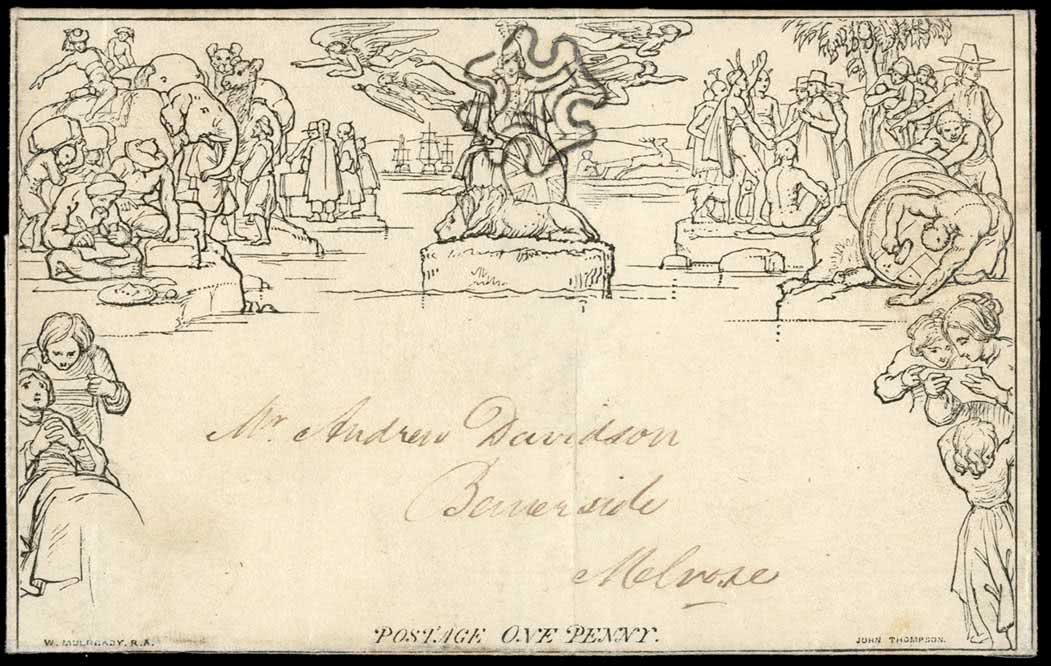 Mr. Andrew Davidson
Melrose
W. MULREADY. R.A.
POSTAGE ONE PENNY.
JOHN THOMPSON.